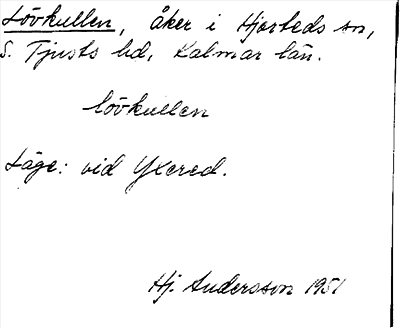 Lövkullen, åker i Hjorteds sn,
S. Tjusts hd, Kalmar län.
lövkullen
Läge: vid Yxered.
Hj. Andersson 1951